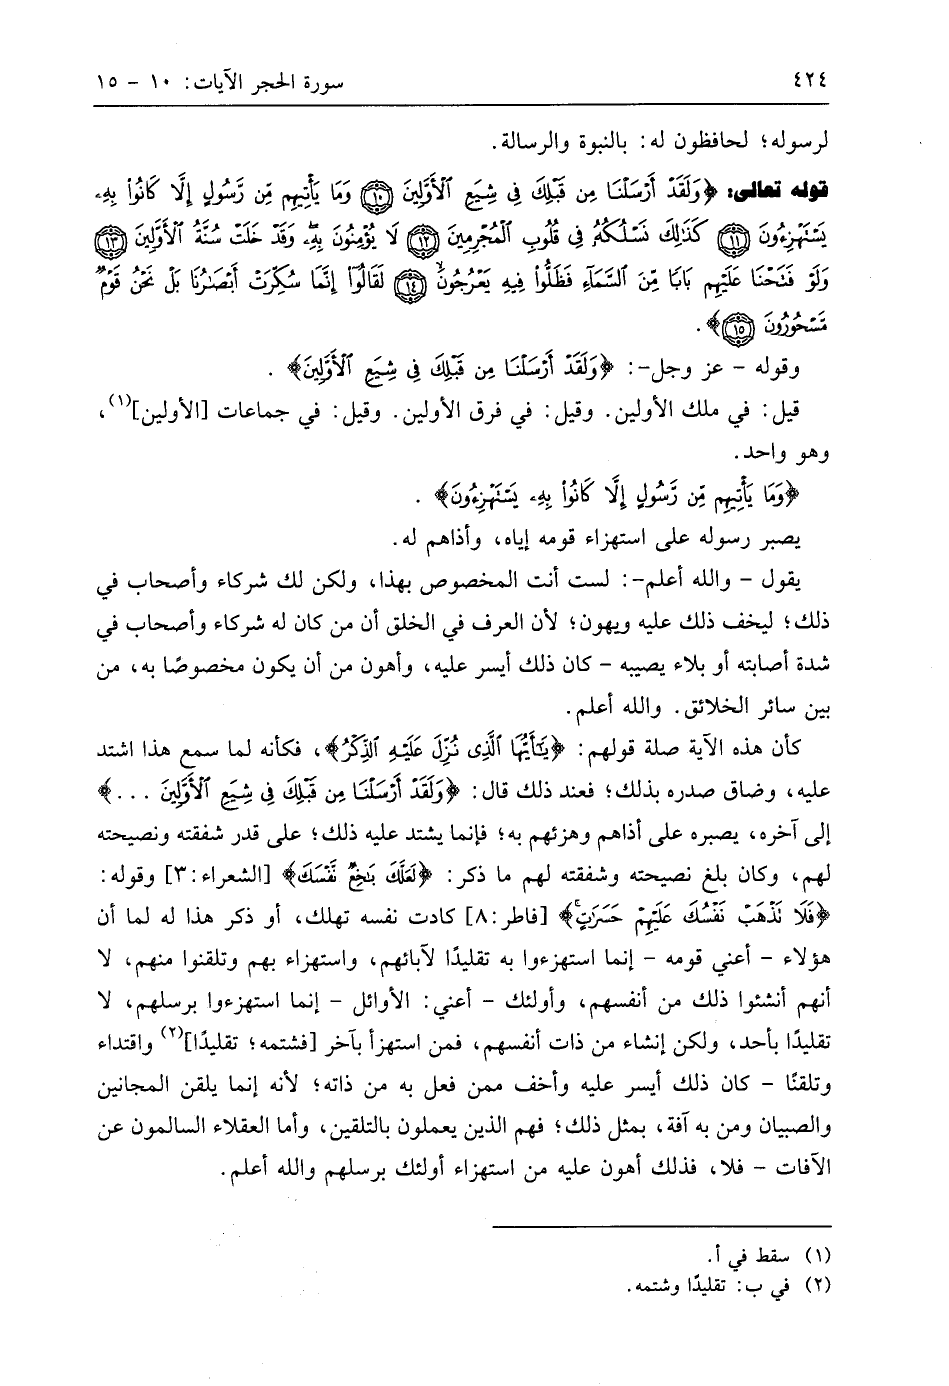 ٤٢٤ سورة الحجر الآيات: ١٠ - ١٥
لرسوله؛ لحافظون له: بالنبوة والرسالة.
قوله تعالى: ﴿وَلَقَدْ أَرْسَلْنَا مِن قَبْلِكَ فِى شِيَعِ ٱلْأَوَّلِينَ ۝١٠ وَمَا يَأْتِيهِم مِّن رَّسُولٍ إِلَّا كَانُوا۟ بِهِۦ
يَسْتَهْزِءُونَ ۝١١ كَذَٰلِكَ نَسْلُكُهُۥ فِى قُلُوبِ ٱلْمُجْرِمِينَ ۝١٢ لَا يُؤْمِنُونَ بِهِۦ وَقَدْ خَلَتْ سُنَّةُ ٱلْأَوَّلِينَ ۝١٣
وَلَوْ فَتَحْنَا عَلَيْهِم بَابًا مِّنَ ٱلسَّمَآءِ فَظَلُّوا۟ فِيهِ يَعْرُجُونَ ۝١٤ لَقَالُوٓا۟ إِنَّمَا سُكِّرَتْ أَبْصَٰرُنَا بَلْ نَحْنُ قَوْمٌ
مَّسْحُورُونَ ۝١٥﴾.
وقوله - عز وجل-: ﴿وَلَقَدْ أَرْسَلْنَا مِن قَبْلِكَ فِى شِيَعِ ٱلْأَوَّلِينَ﴾ .
قيل: في ملك الأولين. وقيل: في فرق الأولين. وقيل: في جماعات [الأولين](١)،
وهو واحد.
﴿وَمَا يَأْتِيهِم مِّن رَّسُولٍ إِلَّا كَانُوا۟ بِهِۦ يَسْتَهْزِءُونَ﴾ .
يصبر رسوله على استهزاء قومه إياه، وأذاهم له.
يقول - والله أعلم-: لست أنت المخصوص بهذا، ولكن لك شركاء وأصحاب في
ذلك؛ ليخف ذلك عليه ويهون؛ لأن العرف في الخلق أن من كان له شركاء وأصحاب في
شدة أصابته أو بلاء يصيبه - كان ذلك أيسر عليه، وأهون من أن يكون مخصوصًا به، من
بين سائر الخلائق. والله أعلم.
كأن هذه الآية صلة قولهم: ﴿يَٰٓأَيُّهَا ٱلَّذِى نُزِّلَ عَلَيْهِ ٱلذِّكْرُ﴾، فكأنه لما سمع هذا اشتد
عليه، وضاق صدره بذلك؛ فعند ذلك قال: ﴿وَلَقَدْ أَرْسَلْنَا مِن قَبْلِكَ فِى شِيَعِ ٱلْأَوَّلِينَ ...﴾
إلى آخره، يصبره على أذاهم وهزئهم به؛ فإنما يشتد عليه ذلك؛ على قدر شفقته ونصيحته
لهم، وكان بلغ نصيحته وشفقته لهم ما ذكر: ﴿لَعَلَّكَ بَٰخِعٌ نَّفْسَكَ﴾ [الشعراء:٣] وقوله:
﴿فَلَا تَذْهَبْ نَفْسُكَ عَلَيْهِمْ حَسَرَٰتٍ﴾ [فاطر:٨] كادت نفسه تهلك، أو ذكر هذا له لما أن
هؤلاء - أعني قومه - إنما استهزءوا به تقليدًا لآبائهم، واستهزاء بهم وتلقنوا منهم، لا
أنهم أنشئوا ذلك من أنفسهم، وأولئك - أعني: الأوائل - إنما استهزءوا برسلهم، لا
تقليدًا بأحد، ولكن إنشاء من ذات أنفسهم، فمن استهزأ بآخر [فشتمه؛ تقليدًا](٢) واقتداء
وتلقنًا - كان ذلك أيسر عليه وأخف ممن فعل به من ذاته؛ لأنه إنما يلقن المجانين
والصبيان ومن به آفة، بمثل ذلك؛ فهم الذين يعملون بالتلقين، وأما العقلاء السالمون عن
الآفات - فلا، فذلك أهون عليه من استهزاء أولئك برسلهم والله أعلم.
(١) سقط في أ.
(٢) في ب: تقليدًا وشتمه.